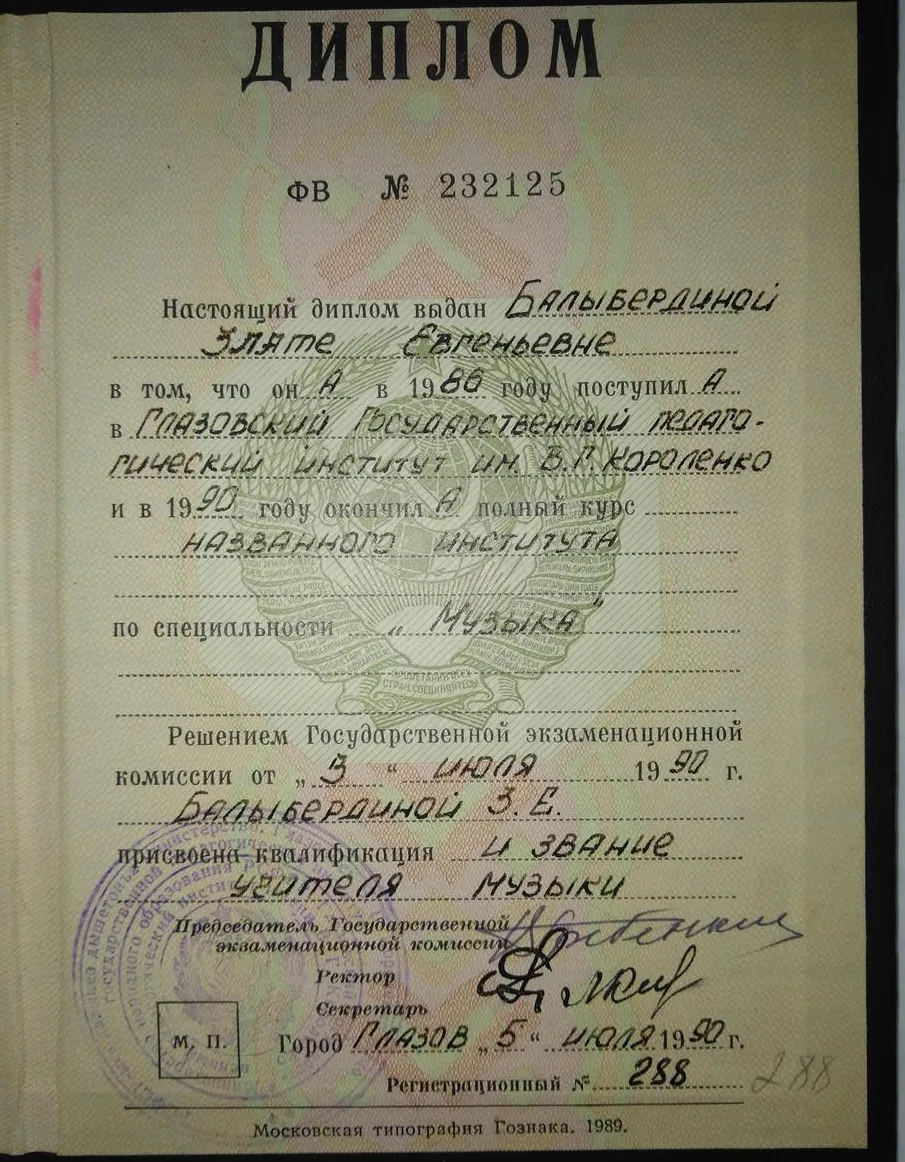 ДИПЛОМ
ФВ № 232125
Настоящий диплом выдан Балыбердиной
Злате Евгеньевне
в том, что он А в 1986 году поступил А
в Глазовский Государственный педаго-
гический институт им. В.Г. Короленко
и в 1990 году окончил А полный курс
названного института
по специальности „Музыка"
ПРОЛЕТАРИИ ВСЕХ
СТРАН, СОЕДИНЯЙТЕСЬ!
Решением Государственной экзаменационной
комиссии от „3“ июля 1990 г.
Балыбердиной З. Е.
присвоена квалификация и звание
учителя музыки
Председатель Государственной
экзаменационной комиссии
Ректор
Секретарь
М. П.
Город Глазов „5“ июля 1990 г.
Регистрационный № 288
288
Московская типография Гознака. 1989.